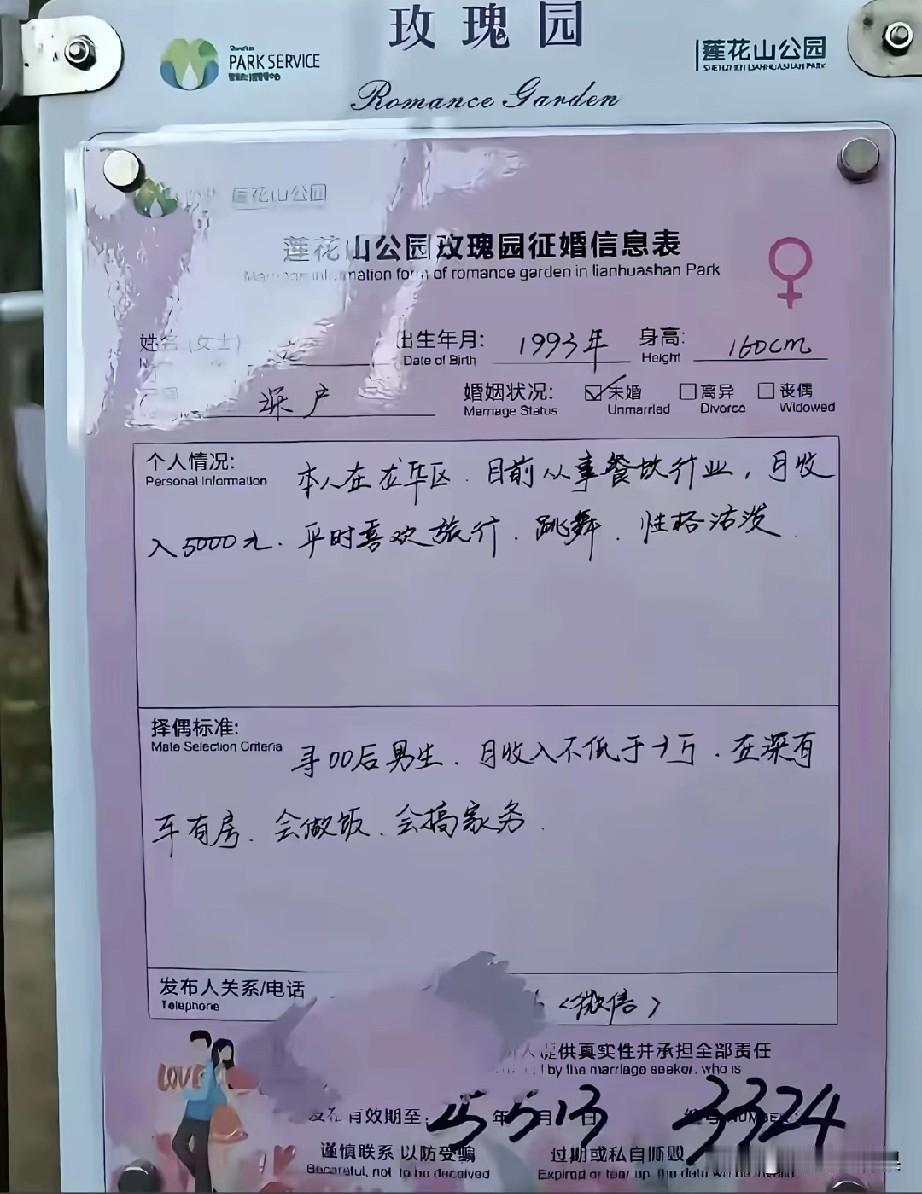 玫瑰园
PARK SERVICE
莲花山公园
SHENZHEN LIANHUASHAN PARK
Romance Garden
莲花山公园
莲花山公园玫瑰园征婚信息表
information form of romance garden in lianhuashan Park
姓名(女士) 出生年月: 1993年 身高: 160cm
Date of Birth Height
深户 婚姻状况: 未婚 离异 丧偶
Marriage Status Unmarried Divorce Widowed
个人情况: 本人在龙华区.目前从事餐饮行业,月收
Personal Information
入5000元.平时喜欢旅行.跳舞.性格活泼
择偶标准:
Mate Selection Criteria
寻00后男生.月收入不低于3万.在深有
车有房.会做饭.会搞家务.
发布人关系/电话 (微信)
Telephone
提供真实性并承担全部责任
by the marriage seeker, who is
LOVE
发布有效期至: 25年5月13日 3324
谨慎联系 以防受骗 过期或私自撕毁
Be careful, not to be deceived Expired or tear up, the data will be invalid